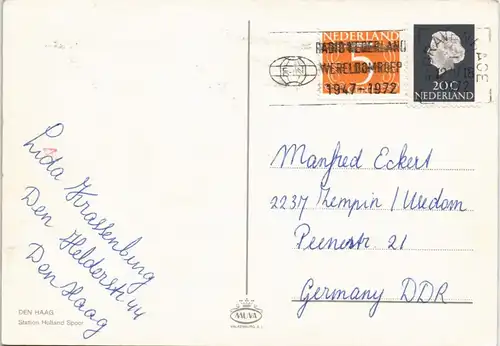 NEDERLAND
5
RADIO NEDERLAND
WERELDOMROEP
1947-1972
20c
NEDERLAND
Lida Krassenburg
Den Helderstr 44
Den Haag
Manfred Eckert
2237 Zempin/Usedom
Peenestr 21
Germany DDR
DEN HAAG
Station Holland Spoor
MUVA
VALKENBURG